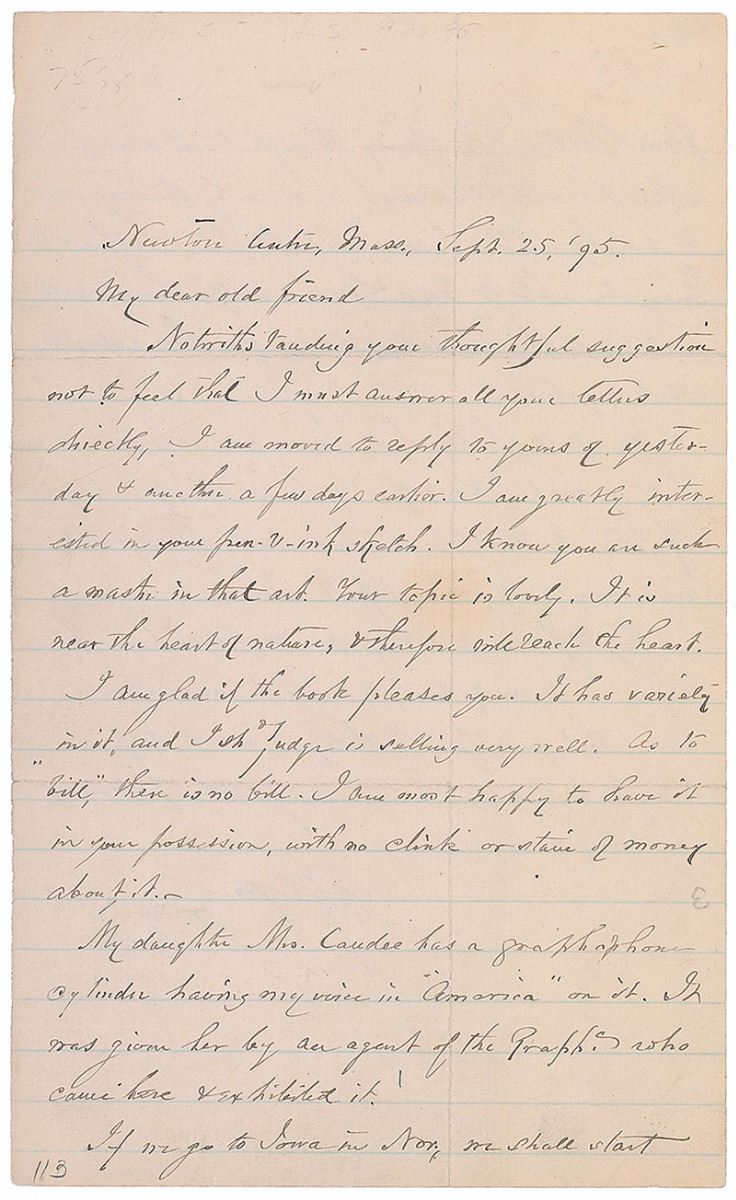 Newton Centre, Mass., Sept. 25, '95.
My dear old friend
Notwithstanding your thoughtful suggestion
not to feel that I must answer all your letters
directly, I am moved to reply to yours of yester-
day & another a few days earlier. I am greatly inter-
ested in your pen-&-ink sketch. I know you are such
a master in that art. Your topic is lovely. It is
near the heart of nature, & therefore will reach the heart.
I am glad if the book pleases you. It has variety
in it, and I shd judge is selling very well. As to
"bill," there is no bill. I am most happy to have it
in your possession, with no clink or stain of money
about it.–
My daughter Mrs. Candee has a graphophone
cylinder having my voice in "America" on it. It
was given her by an agent of the Graph.c who
came here & exhibited it.!
If we go to Iowa in Nov., we shall start
113
3